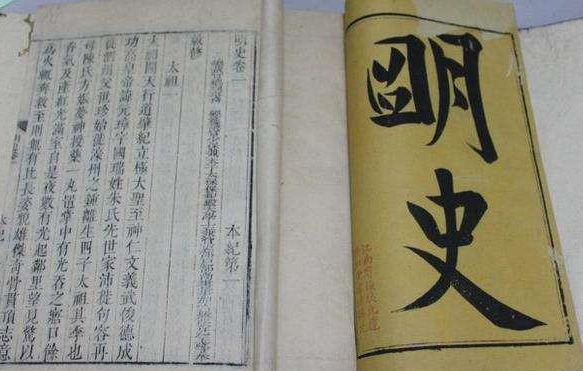 朙史
明史卷一　本紀第一
敕修
太祖一
太祖開天行道肇紀立極大聖至神仁文義武俊德成
功高皇帝諱元璋字國瑞姓朱氏先世家沛徙句容再
徙泗州父世珍始徙濠州之鍾離生四子太祖其季也
母陳氏方娠夢神授藥一丸置掌中有光吞之寤口餘
香氣及產紅光滿室自是夜數有光起鄰里望見驚以
為火輒奔救至則無有比長姿貌雄傑奇骨貫頂志意